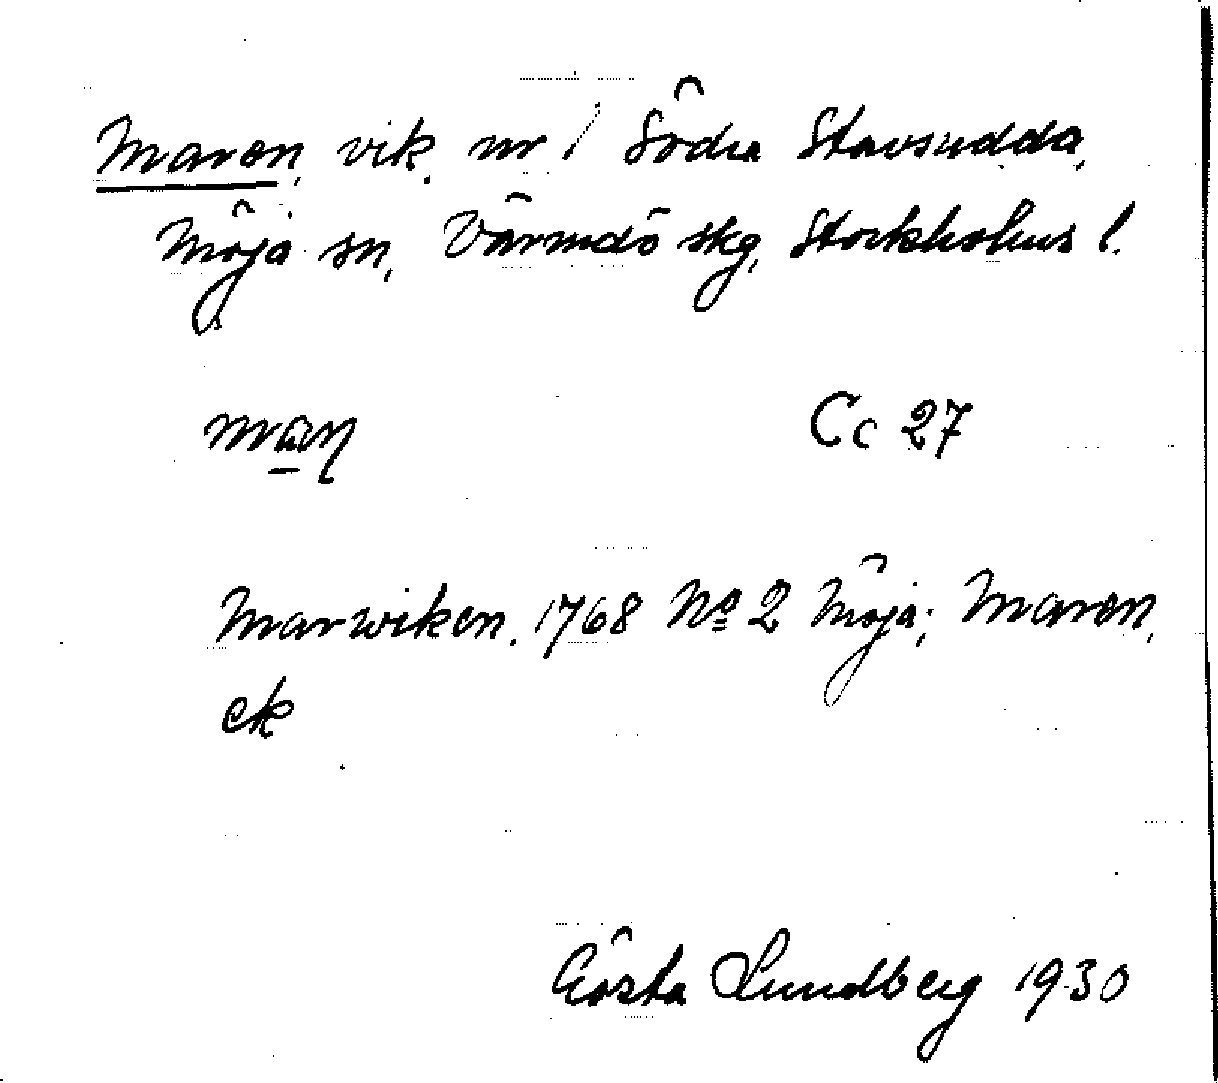 Maren, vik, nr 1 Södra Stavsudda,
Möja sn, Värmdö skg, Stockholms l.
Cc 27
Marwiken, 1768 No 2 Möja; Maren,
ek
Gösta Lundberg 1930